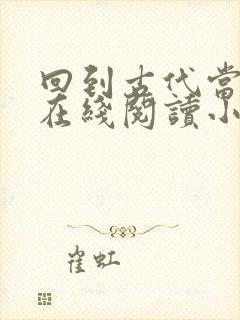 回到古代当
在綫閱讀小
崔虹